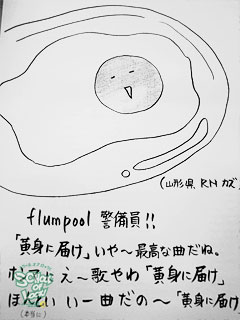 (山形県 RN カズ)
flumpool 警備員!!
「黄身に届け」いや〜最高な曲だね。
ホンマにえ〜歌やわ「黄身に届け」
ほんといい一曲だの〜「黄身に届け